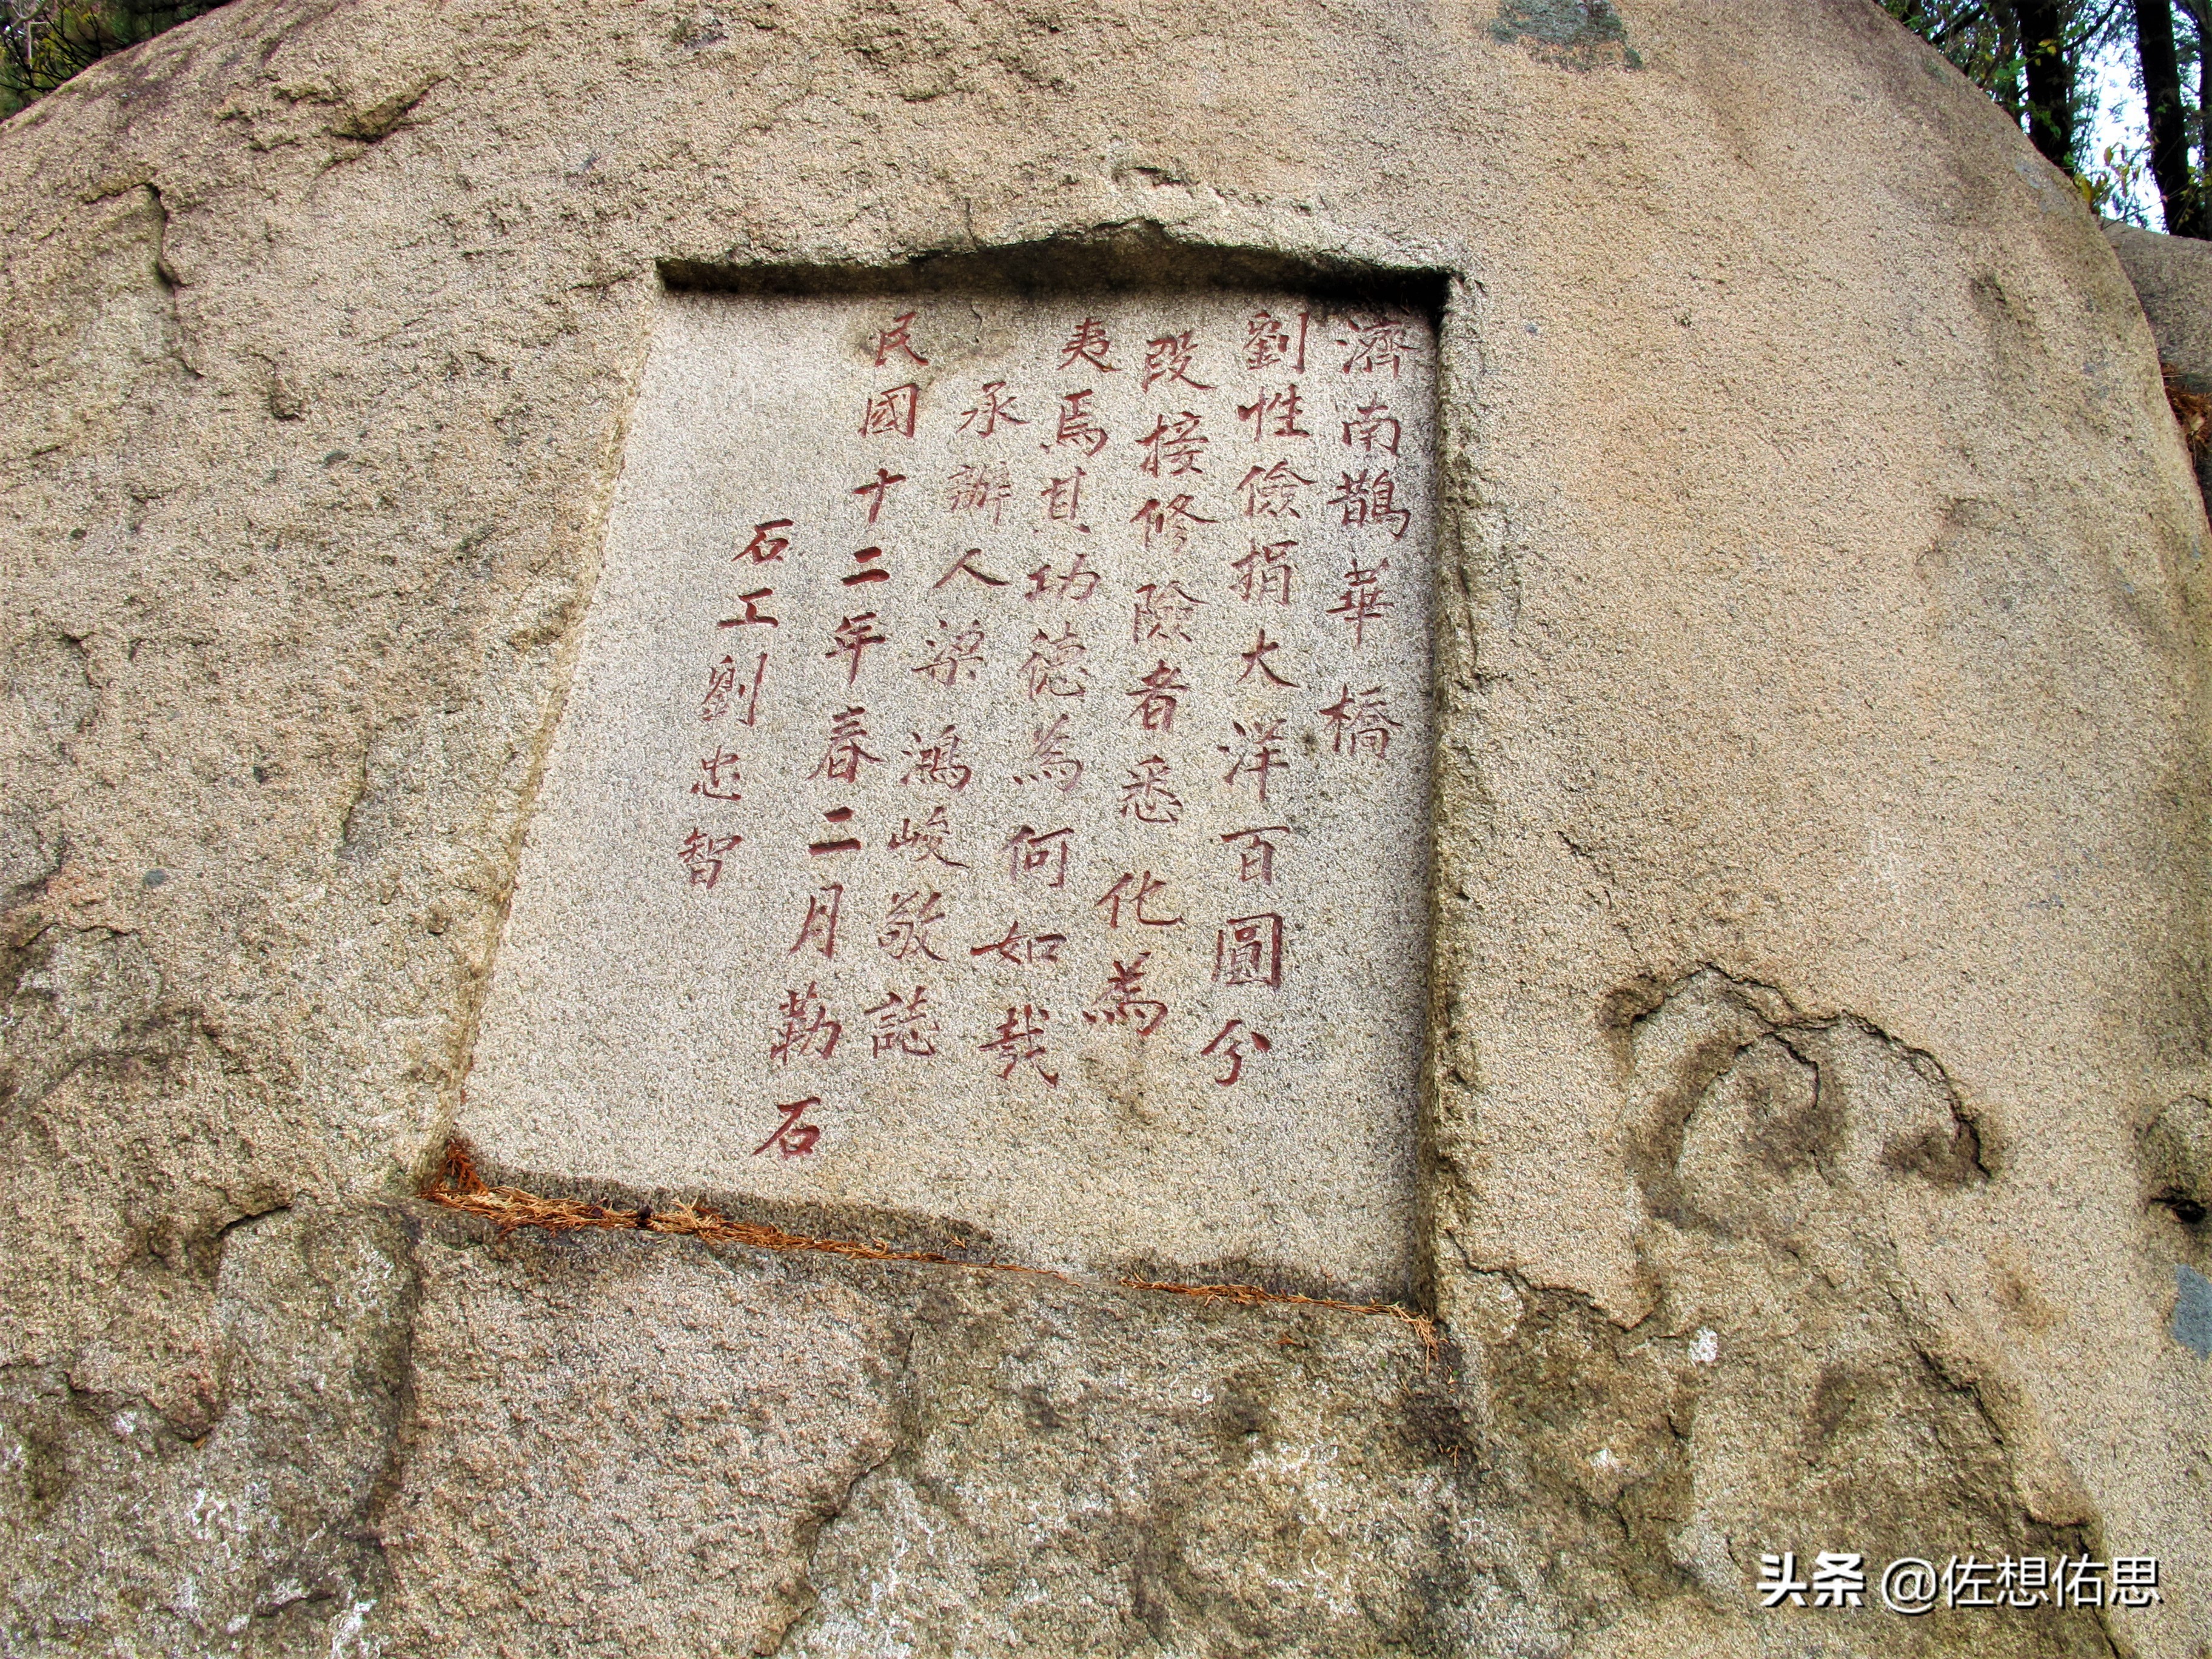 濟南鵲華橋
劉性儉捐大洋百圓分
段接修險者悉化為
夷焉其功德為何如哉
承辦人梁鴻峻敬誌
民國十二年春二月勒石
石工劉忠智
头条 @佐想佑思